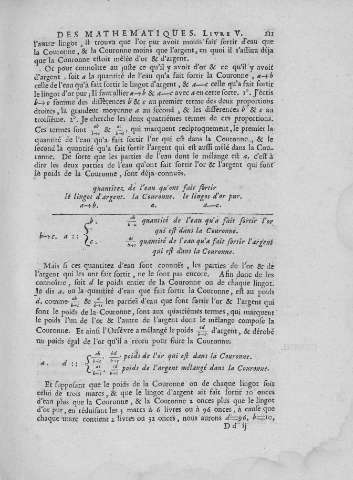 DES MATHEMATIQUES. LIVRE V. 211
l'autre lingot, il trouva que l'or pur avoit moins fait sortir d'eau que
la Couronne, & la Couronne moins que l'argent, en quoi il s'assura déja
que la Couronne estoit mêlée d'or & d'argent.
Or pour connoître au juste ce qu'il y avoit d'or & ce qu'il y avoit
d'argent, soit a la quantité de l'eau qu'a fait sortir la Couronne, a+b
celle qu'a fait sortir le lingot d'argent, & a—c celle qu'a fait sortir
le lingot d'or pur; il faut allier a+b & a—c avec a en cette sorte. 1°. J'écris
b+c somme des différences b & c au premier terme des deux proportions
droites, la grandeur moyenne a au second, & les différences b & c au
troisième. 2°. Je cherche les deux quatrièmes termes de ces proportions.
Ces termes sont ab/b+c & ac/b+c, qui marquent reciproquement, le premier la
quantité de l'eau qu'a fait sortir l'or qui est dans la Couronne, & le
second la quantité de l'eau qu'a fait sortir l'argent qui est aussi mêlé dans la Cou-
ronne. De sorte que les parties de l'eau dont le mélange est a, c'est à
dire les deux parties de l'eau qu'ont fait sortir l'or & l'argent qui sont
le poids de la Couronne, sont déja connuës.
quantitez de l'eau qu'ont fait sortir
le lingot d'argent. la Couronne. le lingot d'or pur.
a+b. a. a—c.
b+c. a :: { b. ab/b+c quantité de l'eau qu'a fait sortir l'or
qui est dans la Couronne.
c. ac/b+c quantité de l'eau qu'a fait sortir l'argent
qui est dans la Couronne.
Mais si ces quantitez d'eau sont connuës, les parties de l'or & de
l'argent qui les ont fait sortir, ne le sont pas encore. Afin donc de les
connoître, soit d le poids entier de la Couronne ou de chaque lingot.
Je dis a, ou la quantité d'eau que fait sortir la Couronne, est au poids
d, comme ab/b+c & ac/b+c, les parties d'eau que font sortir l'or & l'argent qui
sont le poids de la Couronne, sont aux quatrièmes termes, qui marquent
le poids l'un de l'or & l'autre de l'argent dont le mélange compose la
Couronne. Et ainsi l'Orfévre a mélangé le poids cd/b+c d'argent, & dérobé
un poids égal de l'or qu'il a receu pour faire la Couronne.
a. d :: { ab/b+c. bd/b+c poids de l'or qui est dans la Couronne.
ac/b+c. cd/b+c poids de l'argent mélangé dans la Couronne.
Et supposant que le poids de la Couronne ou de chaque lingot soit
celui de trois marcs, & que le lingot d'argent ait fait sortir 10 onces
d'eau plus que la Couronne, & la Couronne 2 onces plus que le lingot
d'or pur, en réduisant les 3 marcs à 6 livres ou à 96 onces, à cause que
chaque marc contient 2 livres ou 32 onces, nous aurons d=96, b=10,
D d ij